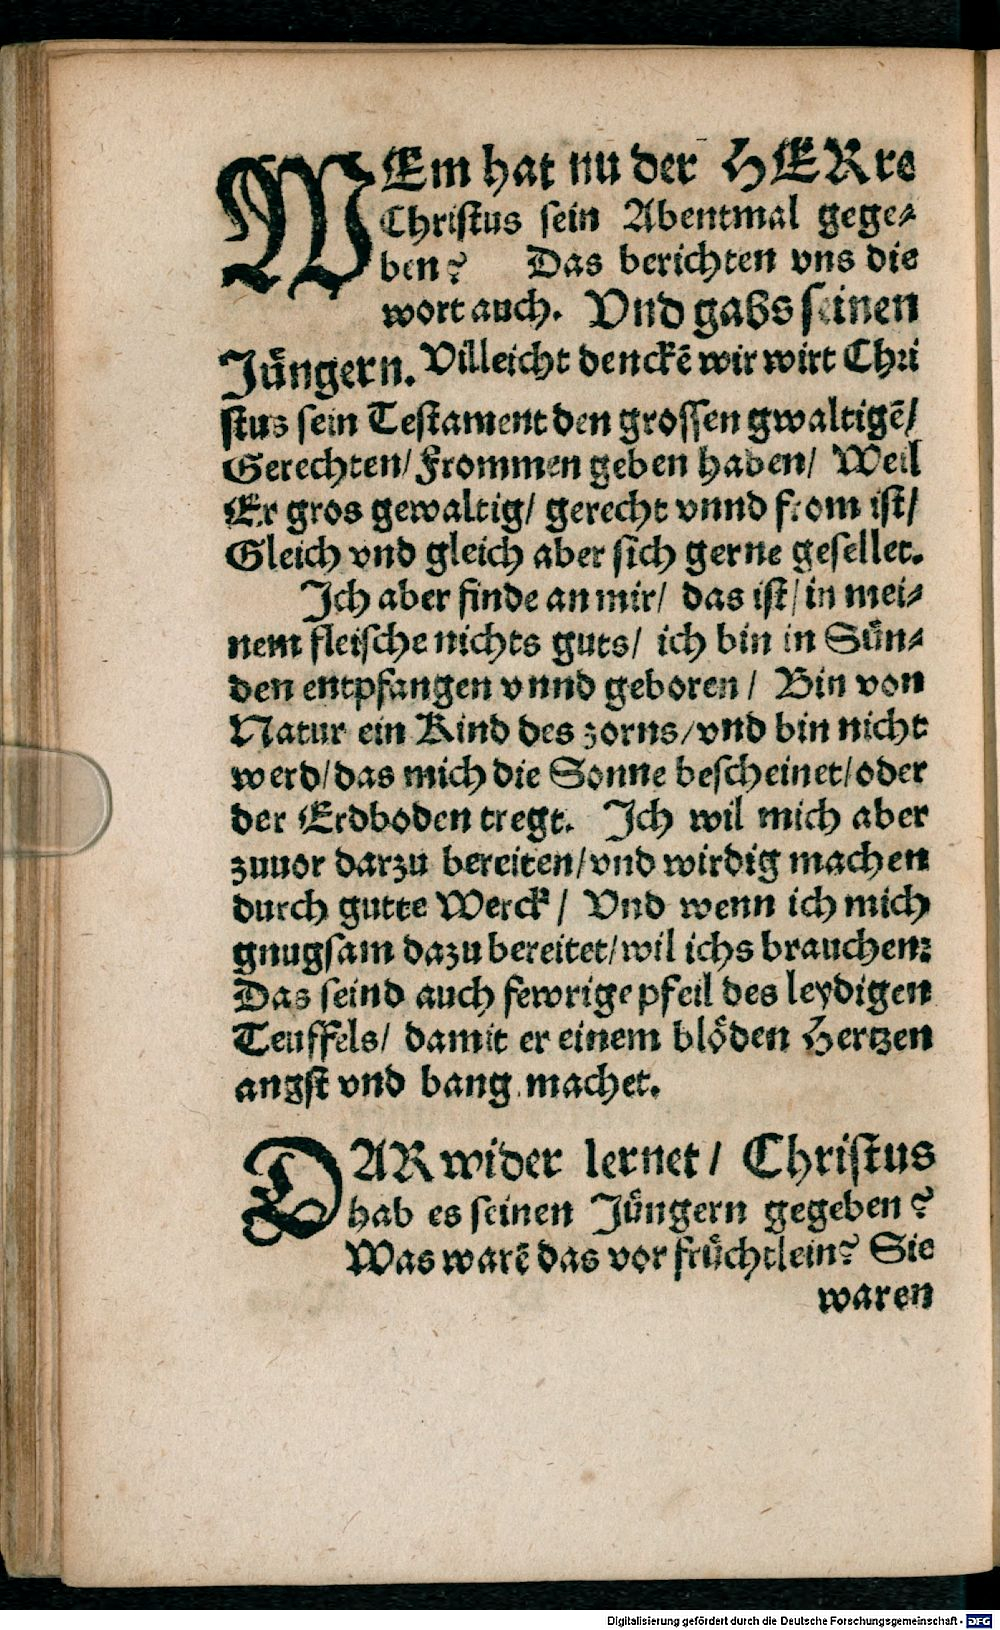 WEm hat nu der HERre
Christus sein Abentmal gege-
ben? Das berichten vns die
wort auch. Vnd gabs seinen
Jüngern. Villeicht denckē wir wirt Chri
stus sein Testament den grossen gwaltigē/
Gerechten/ Frommen geben haben/ Weil
Er gros gewaltig/ gerecht vnnd from ist/
Gleich vnd gleich aber sich gerne gesellet.
Ich aber finde an mir/ das ist/ in mei-
nem fleische nichts guts/ ich bin in Sün-
den entpfangen vnnd geboren/ Bin von
Natur ein Kind des zorns/ vnd bin nicht
werd/ das mich die Sonne bescheinet/ oder
der Erdboden tregt. Ich wil mich aber
zuuor darzu bereiten/ vnd wirdig machen
durch gutte Werck/ Vnd wenn ich mich
gnugsam dazu bereitet/ wil ichs brauchen:
Das seind auch fewrige pfeil des leydigen
Teuffels/ damit er einem blöden Hertzen
angst vnd bang machet.
DARwider lernet/ Christus
hab es seinen Jüngern gegeben?
Was warē das vor früchtlein? Sie
waren
Digitalisierung gefördert durch die Deutsche Forschungsgemeinschaft - DFG